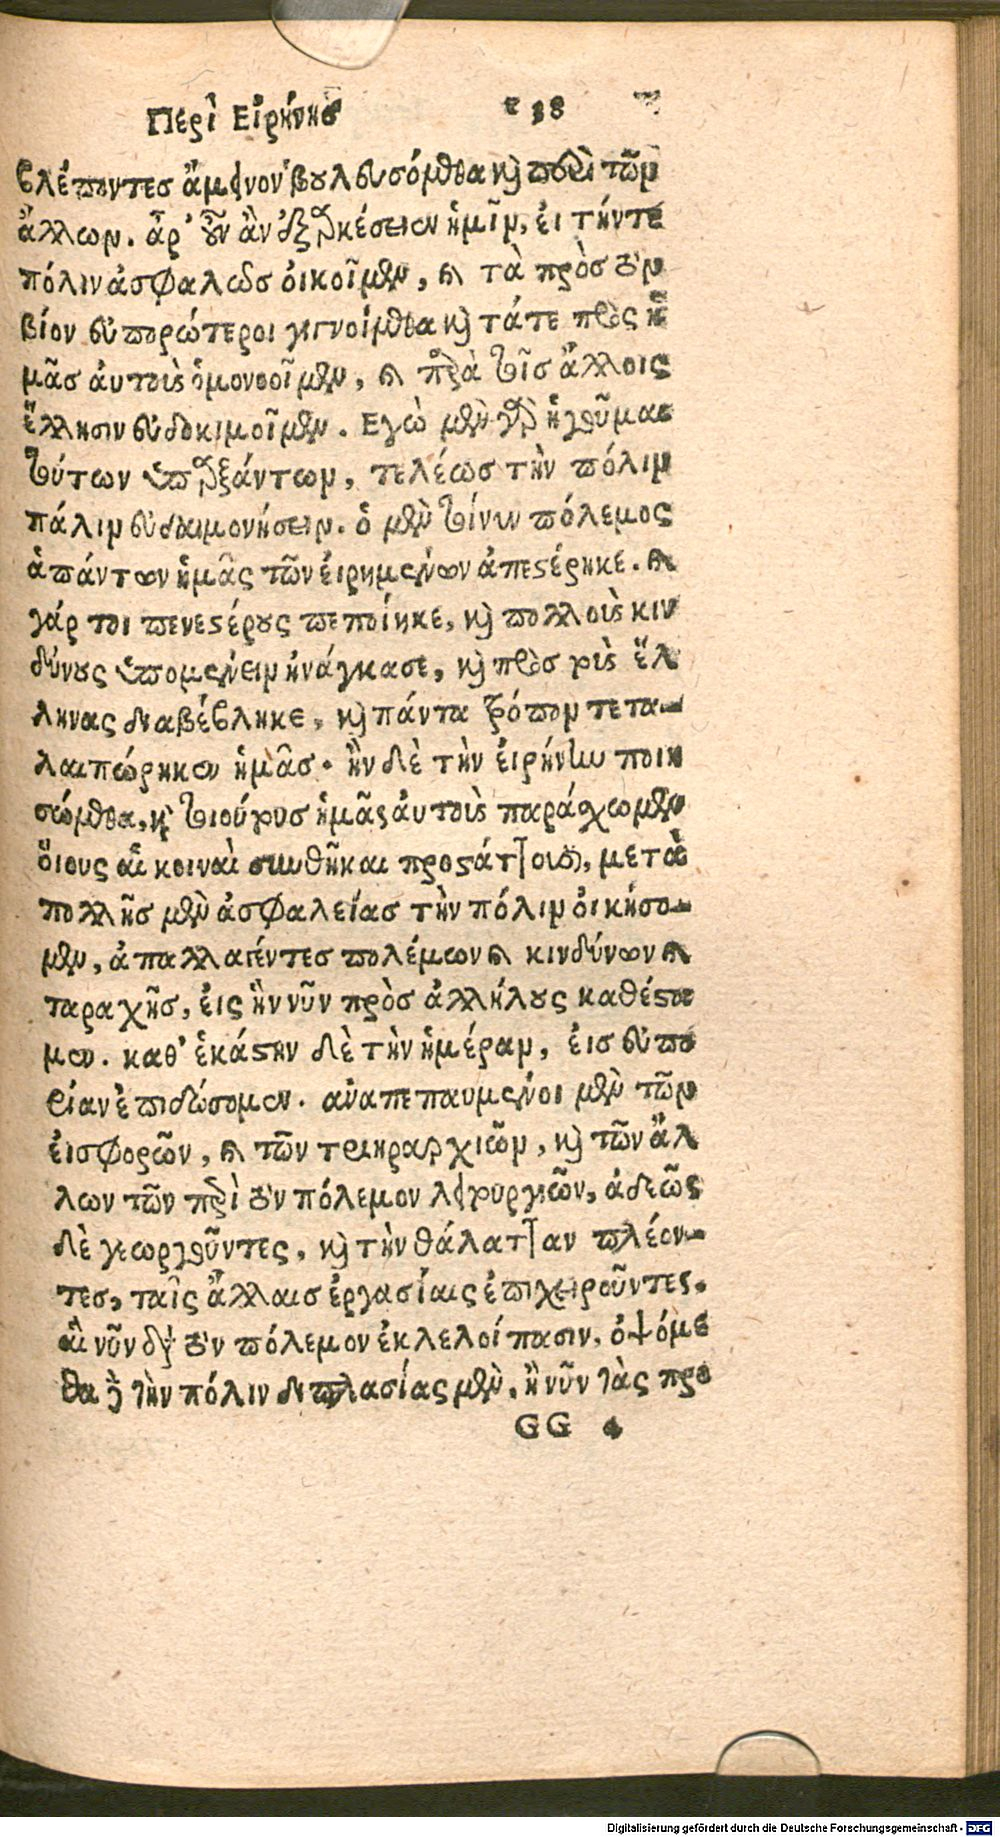 Περὶ Εἰρήνης 238
βλέποντες ἄμεινον βουλευσόμεθα καὶ περὶ τῶν
ἄλλων. ἆρ' οὖν ἂν ἐξαρκέσειεν ἡμῖν, εἰ τήντε
πόλιν ἀσφαλῶς οἰκοῖμεν, καὶ τὰ πρὸς τὸν
βίον εὐπορώτεροι γιγνοίμεθα καὶ τάτε πρὸς ἡ
μᾶς αὐτοὺς ὁμονοοῖμεν, καὶ παρὰ τοῖς ἄλλοις
ἕλλησιν εὐδοκιμοῖμεν. Εγὼ μὲν γὰρ ἡγοῦμαι
τούτων ὑπαρξάντων, τελέως τὴν πόλιν
πάλιν εὐδαιμονήσειν. ὁ μὲν τοίνυν πόλεμος
ἁπάντων ἡμᾶς τῶν εἰρημένων ἀπεστέρηκε. καὶ
γάρ τοι πενεστέρους πεποίηκε, καὶ πολλοὺς κιν
δύνους ὑπομένειν ἠνάγκασε, καὶ πρὸς τοὺς ἕλ
ληνας διαβέβληκε, καὶ πάντα τρόπον τετα-
λαιπώρηκεν ἡμᾶς. ἢν δὲ τὴν εἰρήνην ποιη
σώμεθα, καὶ τοιούτους ἡμᾶς αὐτοὺς παράσχωμεν
οἵους αἱ κοιναὶ συνθῆκαι προστάττουσι, μετὰ
πολλῆς μὲν ἀσφαλείας τὴν πόλιν οἰκήσο-
μεν, ἀπαλλαγέντες πολέμων καὶ κινδύνων καὶ
ταραχῆς, εἰς ἣν νῦν πρὸς ἀλλήλους καθέστα
μεν. καθ' ἑκάστην δὲ τὴν ἡμέραν, εἰς εὐπο
ρίαν ἐπιδώσομεν. ἀναπεπαυμένοι μὲν τῶν
εἰσφορῶν, καὶ τῶν τριηραρχιῶν, καὶ τῶν ἄλ
λων τῶν περὶ τὸν πόλεμον λειτουργιῶν, ἀδεῶς
δὲ γεωργοῦντες, καὶ τὴν θάλατταν πλέον-
τες, ταῖς ἄλλαις ἐργασίαις ἐπιχειροῦντες.
αἳ νῦν διὰ τὸν πόλεμον ἐκλελοίπασιν. ὀψόμε
θα δὲ τὴν πόλιν διπλασίας μὲν, ἢ νῦν τὰς προ
GG 4
Digitalisierung gefördert durch die Deutsche Forschungsgemeinschaft - DFG